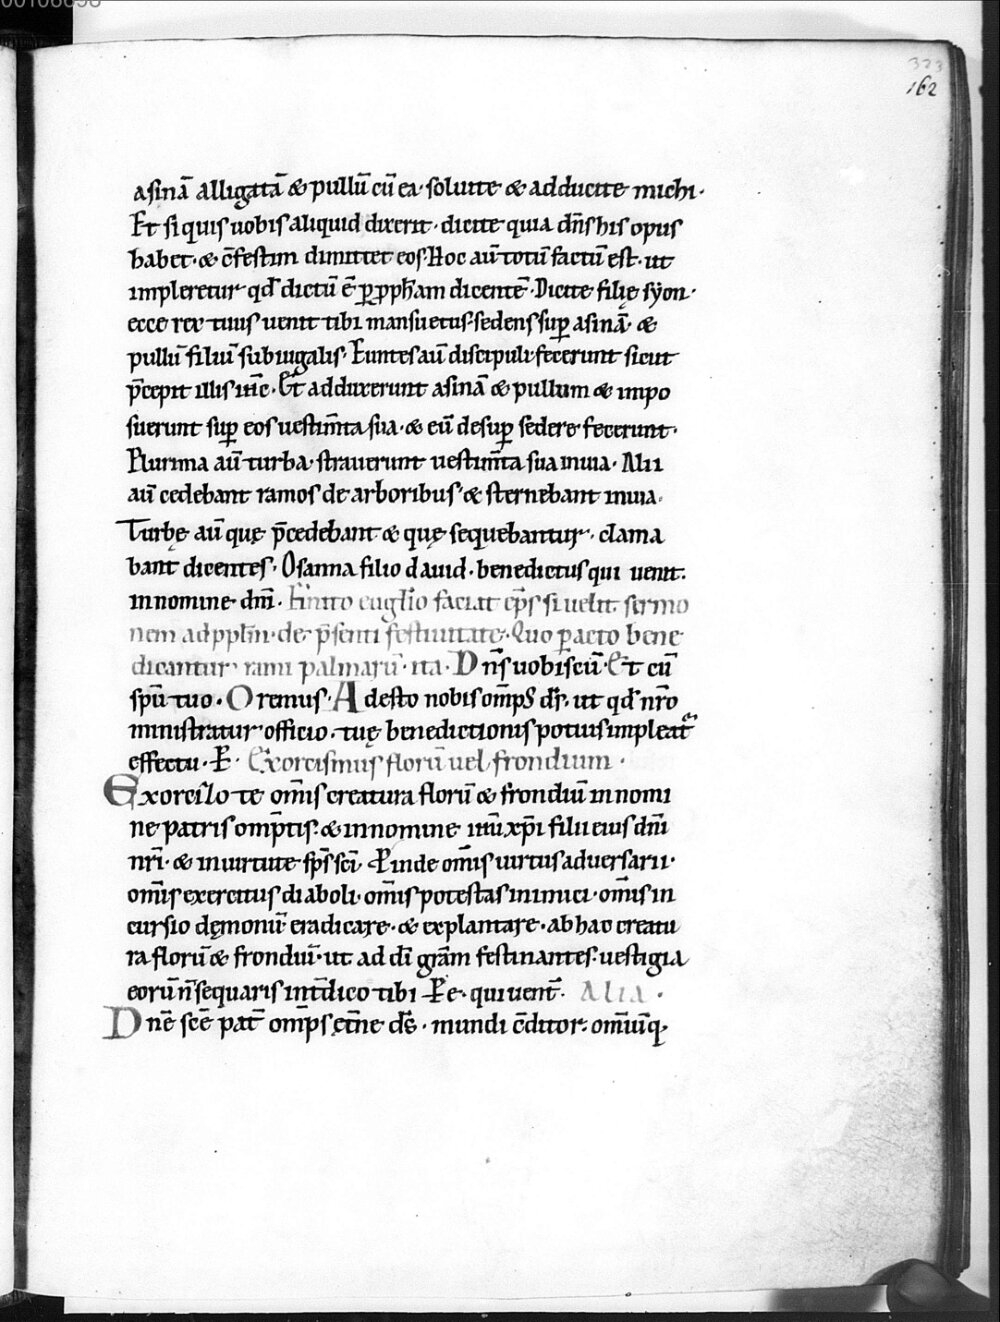 00106698
323
162
asinā alligatā & pullū cū ea · soluite & adducite michi ·
Et si quis uobis aliquid dixerit · dicite quia dn̄s his opus
habet · & c̄festim dimittet eos · Hoc aū totū factū est · ut
impleretur qd̄ dictū ē ꝑ ꝓph̄am dicentē · Dicite filię syon ·
ecce rex tuus uenit tibi mansuetus · sedens suꝑ asinā · &
pullū filiū subiugalis · Euntes aū discipuli fecerunt sicut
p̄cepit illis ih̄c · Et adduxerunt asinā & pullum & impo
suerunt suꝑ eos uestim̄ta sua · & eū desuꝑ sedere fecerunt ·
Plurima aū turba · strauerunt uestim̄ta sua in uia · Alii
aū cedebant ramos de arboribus · & sternebant in uia ·
Turbę aū quę p̄cedebant & quę sequebantur · clama
bant dicentes · Osanna filio dauid · benedictus qui uenit ·
in nomine dn̄i · Finito euglīo faciat ep̄s si uelit sermo
nem ad ppl̄m · de p̄senti festiuitate · Quo ꝑacto bene
dicantur rami palmarū · ita · Dn̄s uobiscū · Et cū
sp̄u tuo · Oremus · Adesto nobis om̄ps d̄s · ut qd̄ nr̄o
ministratur officio · tuę benedictionis potius impleat̄
effectu · P · Exorcismus florū uel frondium ·
Exorcizo te om̄is creatura florū & frondiū in nomi
ne patris om̄ptis · & in nomine ih̄u xp̄i filii eius dn̄i
nr̄i · & in uirtute sp̄s sc̄i · Pinde om̄is uirtus aduersarii ·
om̄is exercitus diaboli · om̄is potestas inimici · om̄is in
cursio dęmonū eradicare · & explantare · ab hac creatu
ra florū & frondiū · ut ad dī grām festinantes · uestigia
eorū n̄ sequaris int̄dico tibi · Pe · qui uent̄ · Alia ·
Dn̄e sc̄e pat̄ om̄ps ęt̄ne ds̄ · mundi c̄ditor · om̄iūq·